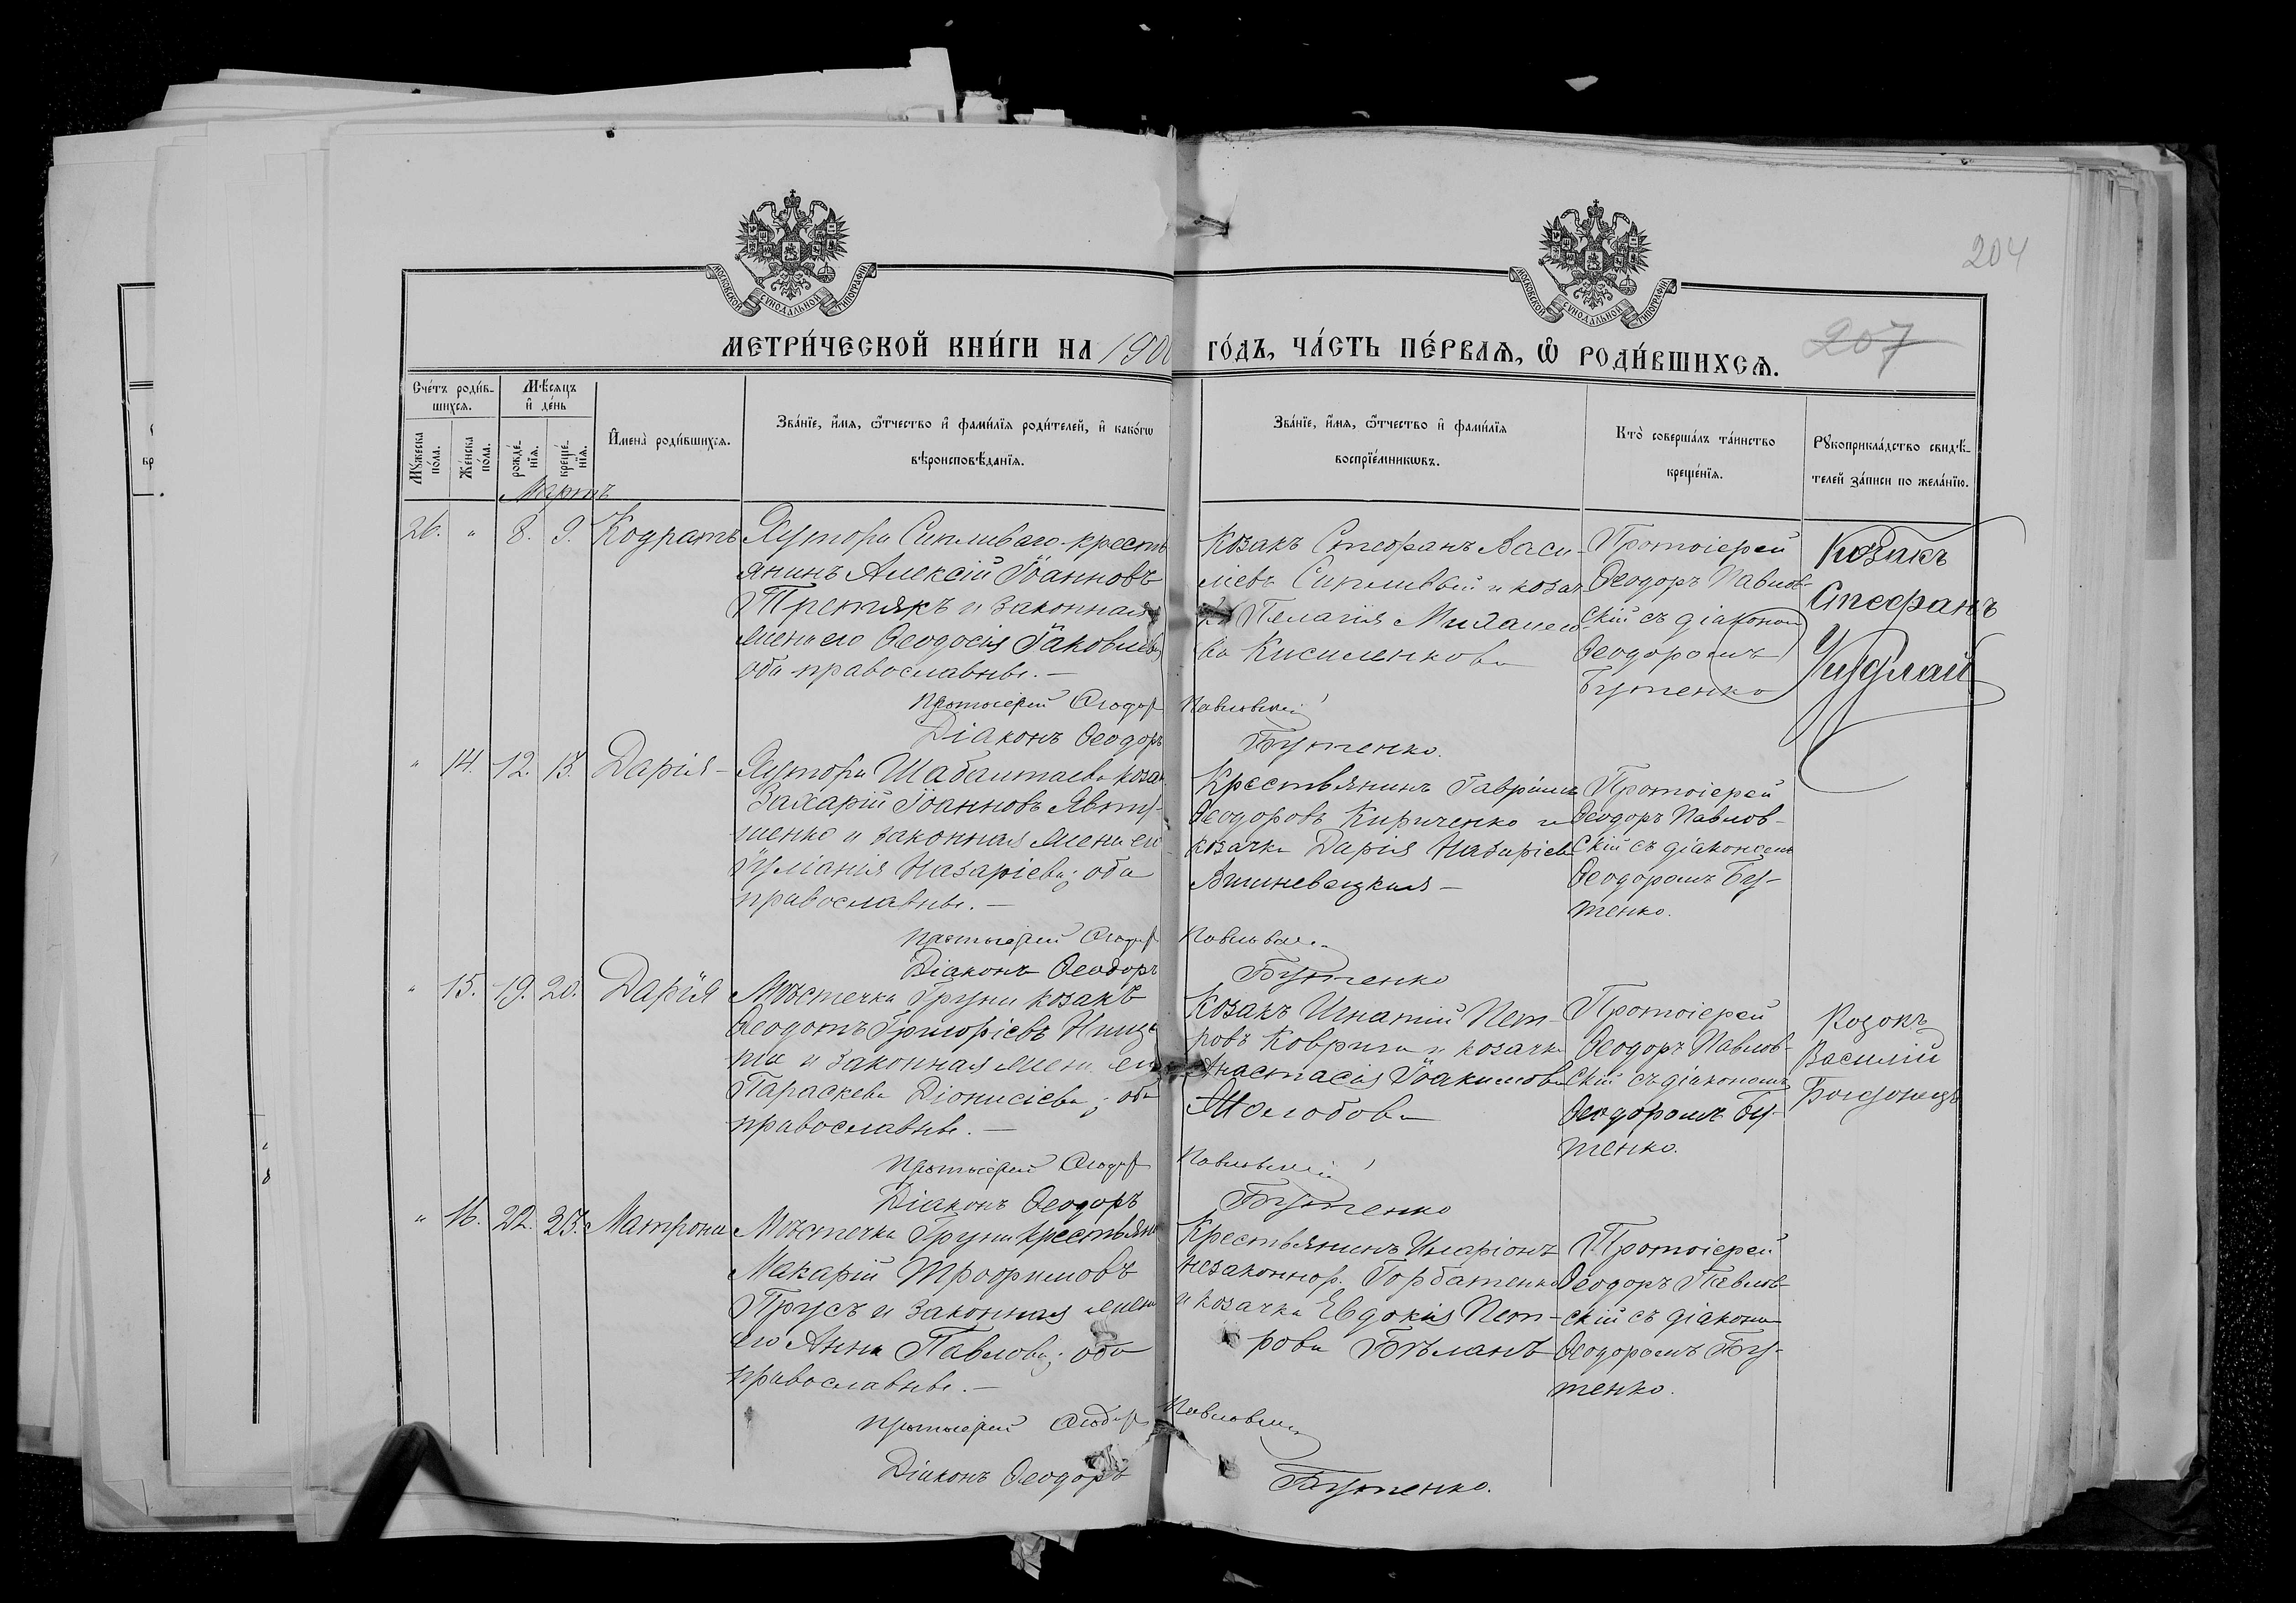 204
МОСКОВСКОЙ СУНОДАЛЬНОЙ ТИПОГРАФІИ
МОСКОВСКОЙ СУНОДАЛЬНОЙ ТИПОГРАФІИ
МЕТРИ́ЧЕСКОЙ КНИ́ГИ НА 1900 ГО́ДЪ, ЧА́СТЬ ПЕ́РВАѦ, Ѡ҆ РОДИ́ВШИХСѦ.
207
Сче́тъ роди́в-
шихсѧ.
Мѣ́сѧцъ
и҆ де́нь
Мꙋ́жеска
по́ла.
Же́нска
пола.
рожде́-
нїѧ.
креще́-
нїѧ.
И҆мена̀ роди́вшихсѧ.
Зва́нїе, и҆́мѧ, ѻ҆́тчество и҆ фами́лїѧ роди́телей, и҆ како́гѡ
вѣроисповѣ́данїѧ.
Зва́нїе, и҆́мѧ, ѻ҆́тчество и҆ фами́лїѧ
воспрїе́мникѡвъ.
Кто̀ соверша́лъ та́инство
креще́нїѧ.
Рꙋкоприкла́дство свидѣ́-
телей за́писи по жела́нїю.
Мартъ
26. " 8. 9. Кодратъ
Хутора Сипливаго кресть
янинъ Алексій Іоанновъ
Третякъ и законная
жена его Ѳеодосія Іаковлева
оба православные. —
Козакъ Стефанъ Васи-
ліевъ Сипливый и козач
ка Пелагія Михаило-
ва Кисиленкова
Протоіерей
Ѳеодоръ Павлов-
скій съ діаконом
Ѳеодоромъ
Бутенко
Козакъ
Стефанъ
Протоіерей Ѳеодор Павловскій
Діаконъ Ѳеодоръ Бутенко.
" 14. 12. 13. Дарія —
Хутора Шабалтаева козак
Захарій Іоанновъ Явту-
шенко и законная жена его
Іуліанія Назаріева; оба
православные. —
Крестьянинъ Гавріилъ
Ѳеодоровъ Кириченко и
козачка Дарія Назаріева
Вишневецкая —
Протоіерей
Ѳеодоръ Павлов-
скій съ діакономъ
Ѳеодоромъ Бу-
тенко.
Протоіерей Ѳеодор Павловскій
Діаконъ Ѳеодоръ Бутенко
" 15. 19. 20. Дарія
Мѣстечка Груни козакъ
Ѳеодотъ Григоріевъ
и законная жена его
Параскева Діонисіева; оба
православные. —
Козакъ Игнатій Пет-
ровъ Коврига и козачка
Анастасія Іоакимова
Жолобова
Протоіерей
Ѳеодоръ Павлов-
скій съ діакономъ
Ѳеодоромъ Бу-
тенко.
Козакъ
Василій
Протоіерей Ѳеодор Павловскій
Діаконъ Ѳеодоръ Бутенко
" 16. 22. 23. Матрона
Мѣстечка Груни крестьянин
Макарій Трофимовъ
Прусъ и законная жена
его Анна Павлова; оба
православные. —
Крестьянинъ Иларіонъ
незаконнор. Горбатенко
и козачка Евдокія Пет-
рова Бѣланъ
Протоіерей
Ѳеодоръ Павлов-
скій съ діакономъ
Ѳеодоромъ Бу-
тенко.
Протоіерей Ѳеодор Павловскій
Діаконъ Ѳеодоръ Бутенко.